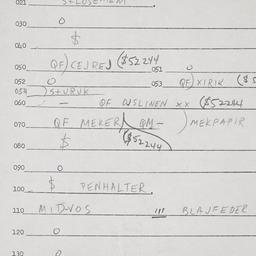 021 S+LUSEMEM
030 0
040 $
050 QF) CEJREJ ($52244
051 0
052 0
053 QF) XIRIK ($5
054 )S+URUK
060 - QF OJSLINEN xx ($52244
070 QF MEKER) QM- ) MEKPAPIR
080 $ ($52244
090 0
100 $ PENHALTER
110 MIT-VOS !!! BLAJFEDER
120 0
130 0